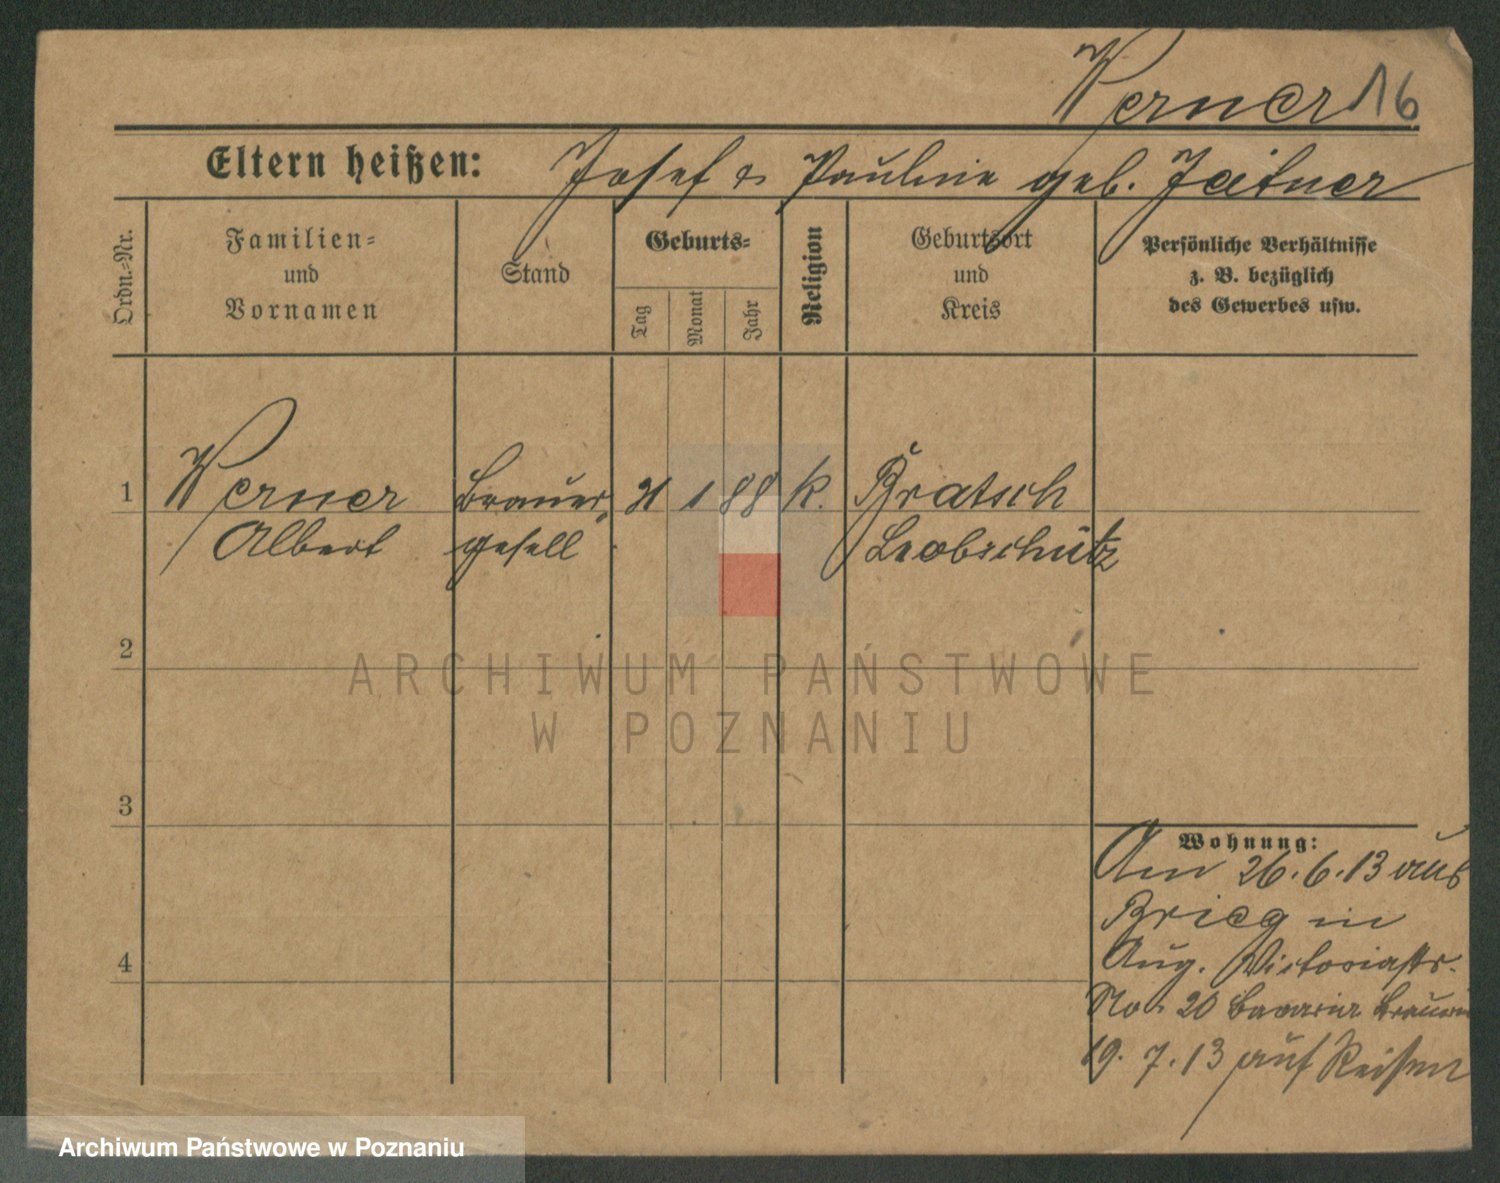 Werner 16
Eltern heißen: Josef & Pauline geb. Zeitner
Ordn.-Nr.
Familien-
und
Vornamen
Stand
Geburts-
Tag
Monat
Jahr
Religion
Geburtsort
und
Kreis
Persönliche Verhältnisse
z. B. bezüglich
des Gewerbes usw.
1 Werner Brauer- 21 1 88 k. Bratsch
Albert gesell Leobschütz
2
3
4
Wohnung:
Am 26.6.13 aus
Brieg in
Aug. Victoriastr.
No. 20 Bavaria Brauerei
19. 7. 13 auf Reisen
ARCHIWUM PAŃSTWOWE
W POZNANIU
Archiwum Państwowe w Poznaniu